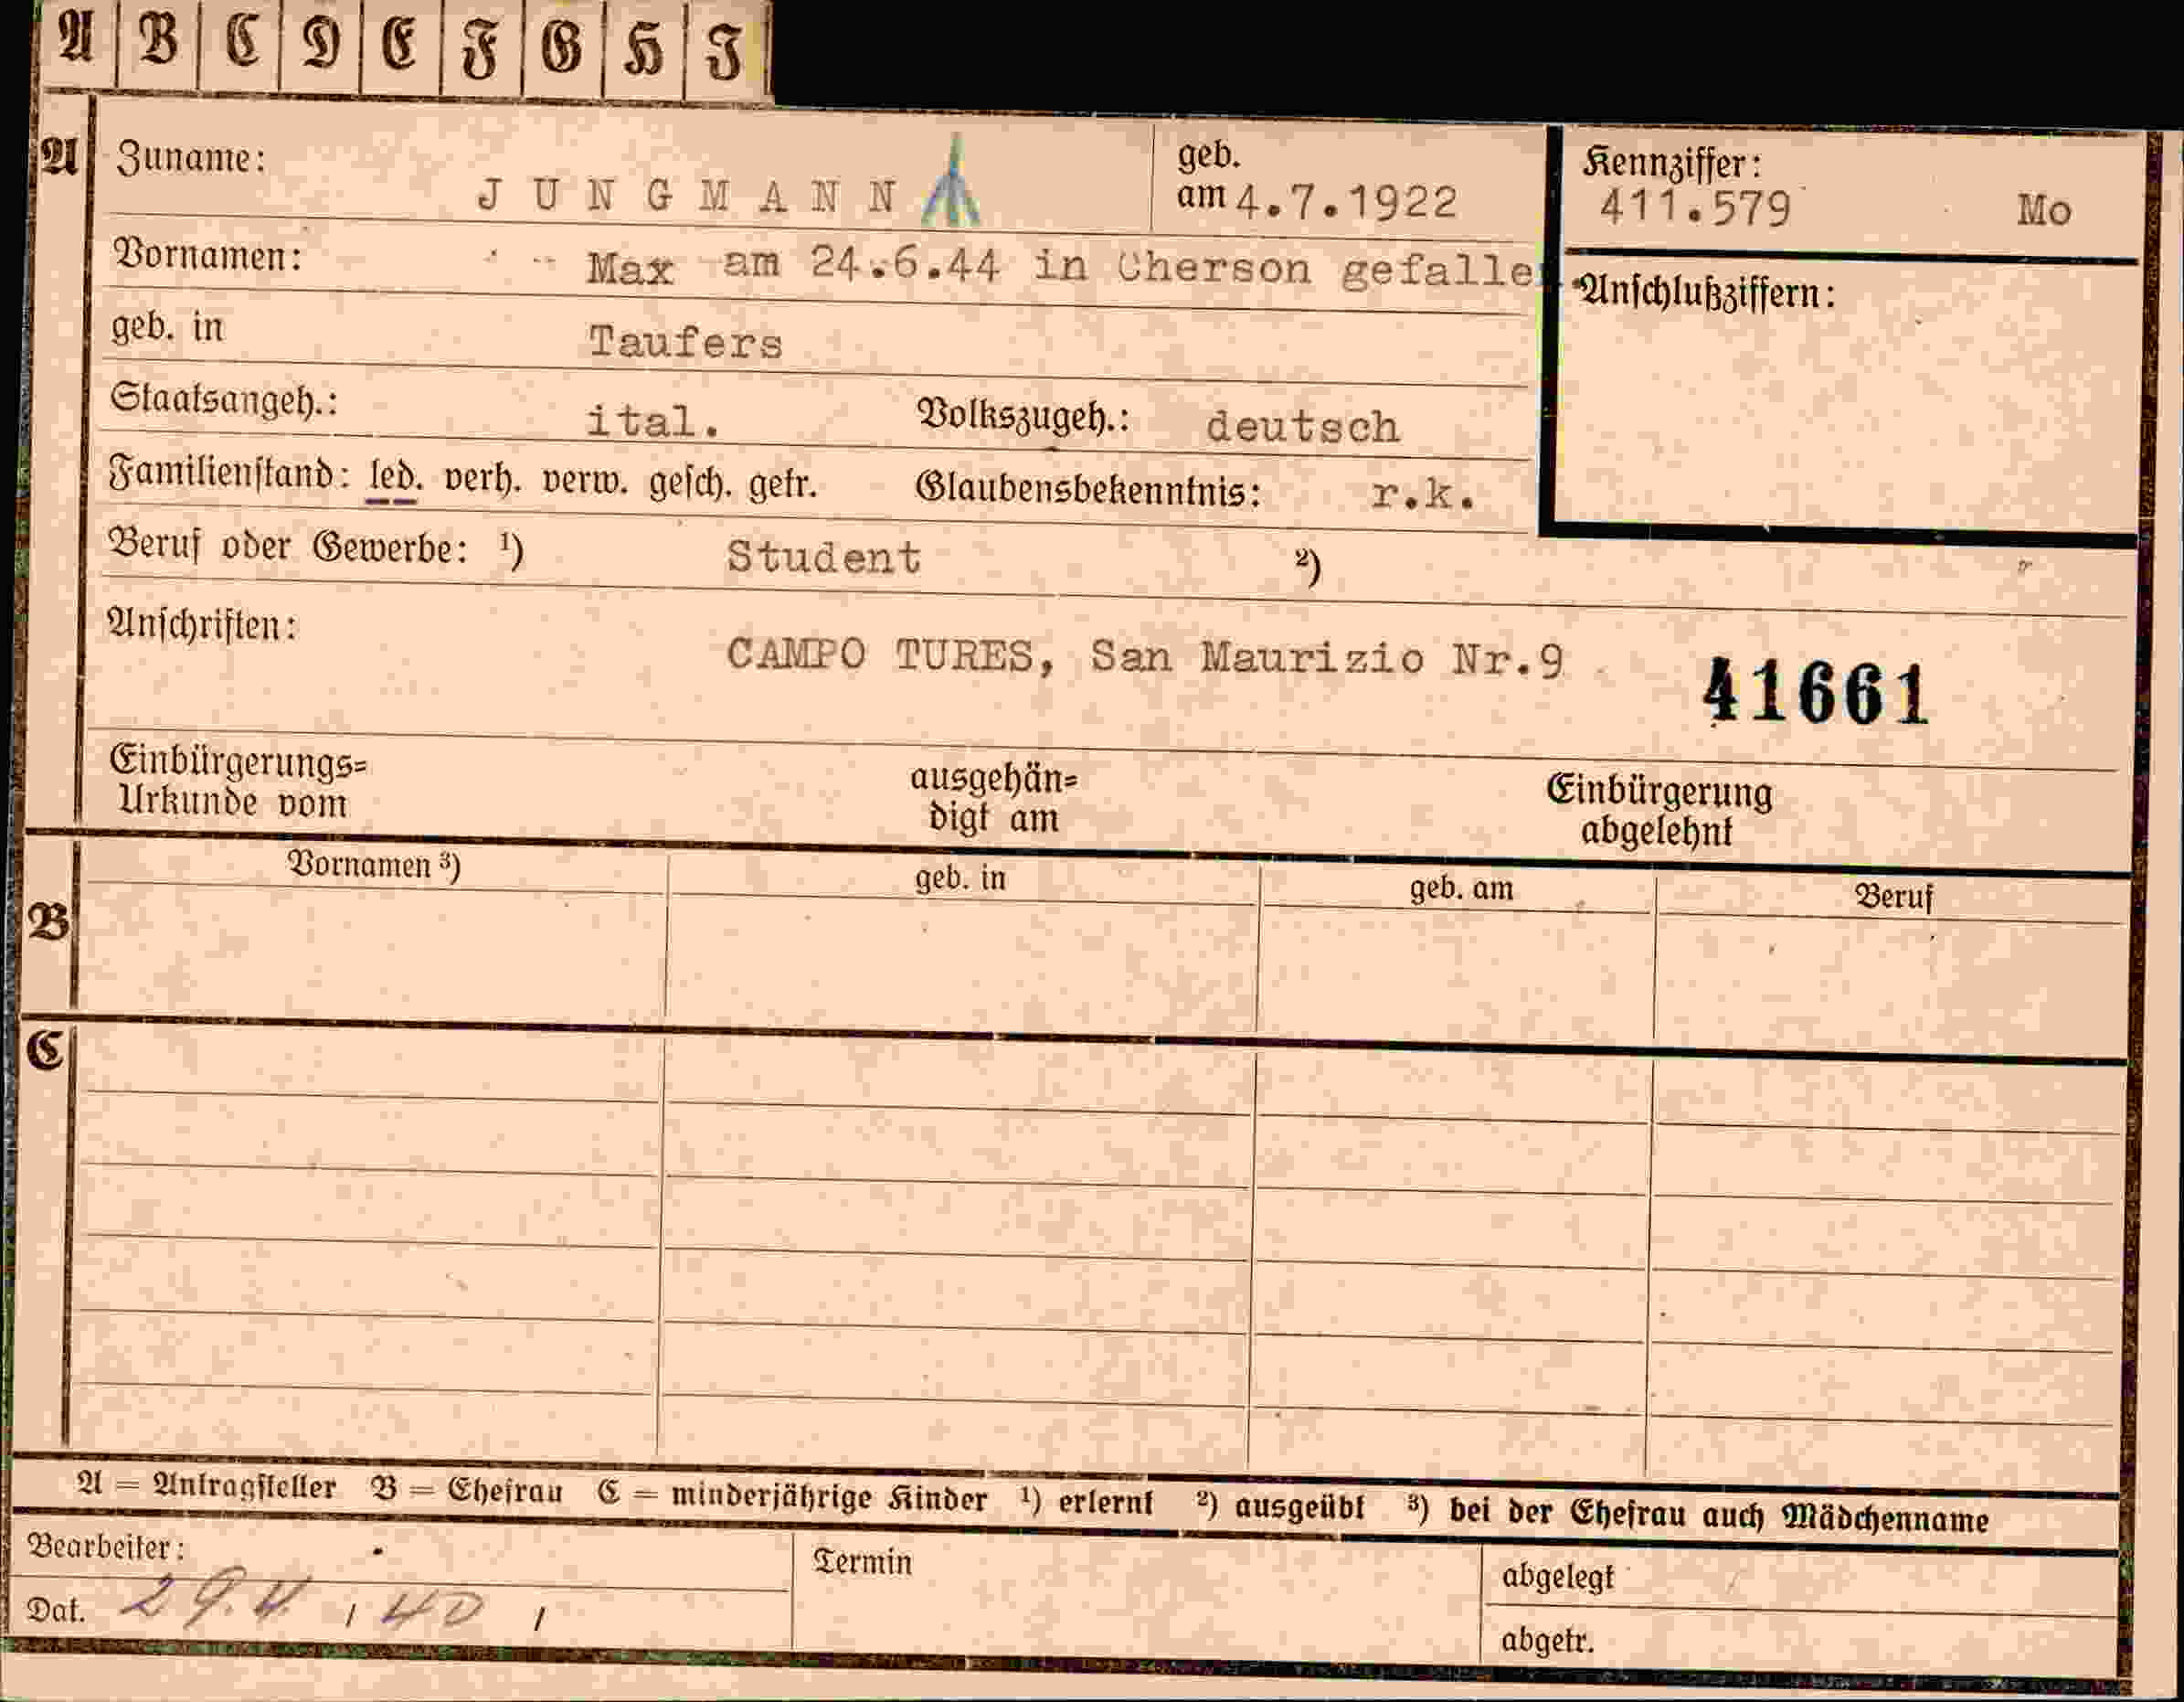 A B C D E F G H I
A Zuname: JUNGMANN geb. am 4.7.1922 Kennziffer: 411.579 Mo
Vornamen: Max am 24.6.44 in Cherson gefalle
Anschlußziffern:
geb. in Taufers
Staatsangeh.: ital. Volkszugeh.: deutsch
Familienstand: led. verh. verw. gesch. getr. Glaubensbekenntnis: r.k.
Beruf oder Gewerbe: ¹) Student ²)
Anschriften: CAMPO TURES, San Maurizio Nr.9 41661
Einbürgerungs= ausgehän= Einbürgerung
Urkunde vom digt am abgelehnt
Vornamen ³) geb. in geb. am Beruf
B
C
A = Antragsteller B = Ehefrau C = minderjährige Kinder ¹) erlernt ²) ausgeübt ³) bei der Ehefrau auch Mädchenname
Bearbeiter: Termin abgelegt
Dat. 29.4. / 40 / abgetr.